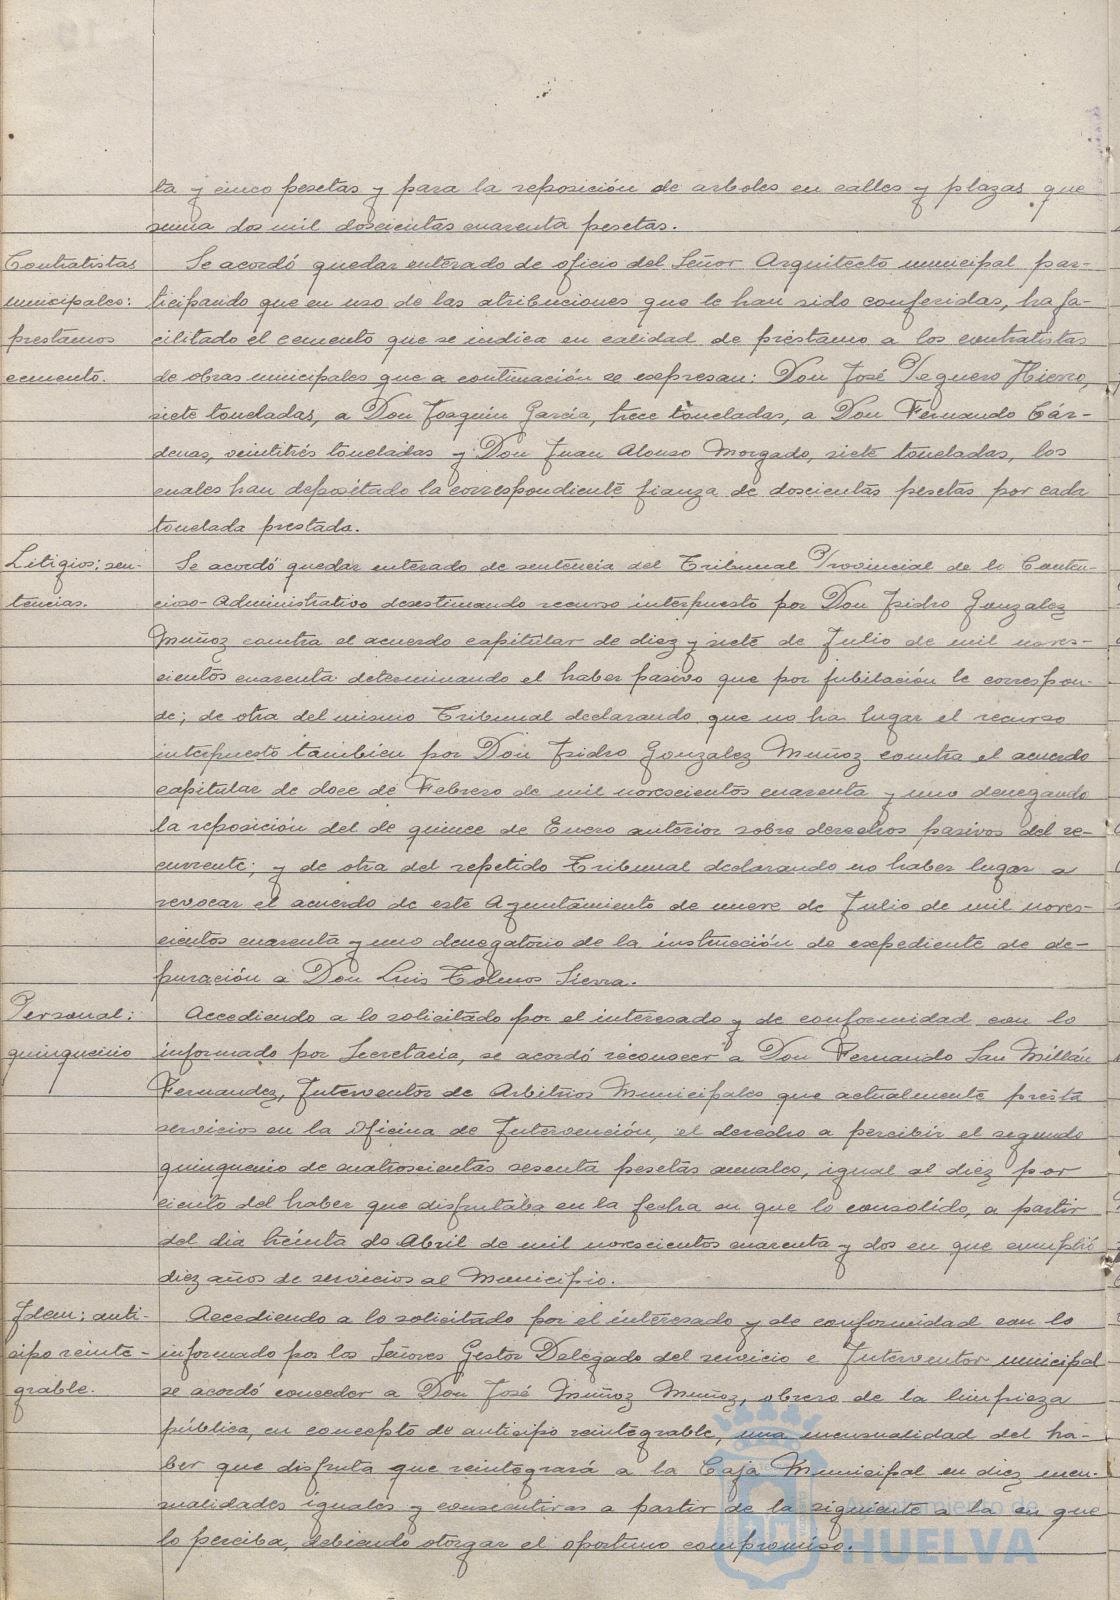 ta y cinco pesetas y para la reposición de arboles en calles y plazas que
suma dos mil doscientas cuarenta pesetas.
Contratistas
municipales:
prestamos
cemento.
Se acordó quedar enterado de oficio del Señor Arquitecto municipal par-
ticipando que en uso de las atribuciones que le han sido conferidas, ha fa-
cilitado el cemento que se indica en calidad de préstamo a los contratistas
de obras municipales que a continuación se expresan: Don José Peguero Hierro,
siete toneladas, a Don Joaquín García, trece toneladas, a Don Fernando Cár-
denas, veintitrés toneladas y Don Juan Alonso Morgado, siete toneladas, los
cuales han depositado la correspondiente fianza de doscientas pesetas por cada
tonelada prestada.
Litigios; sen-
tencias.
Se acordó quedar enterado de sentencia del Tribunal Provincial de lo Conten-
cioso-Administrativo desestimando recurso interpuesto por Don Isidro Gonzalez
Muñoz contra el acuerdo capitular de diez y siete de Julio de mil noves-
cientos cuarenta determinando el haber pasivo que por jubilación le correspon-
de; de otra del mismo Tribunal declarando que no ha lugar el recurso
interpuesto tambien por Don Isidro Gonzalez Muñoz contra el acuerdo
capitular de doce de Febrero de mil novescientos cuarenta y uno denegando
la reposición del de quince de Enero anterior sobre derechos pasivos del re-
currente; y de otra del repetido Tribunal declarando no haber lugar a
revocar el acuerdo de este Ayuntamiento de nueve de Julio de mil noves-
cientos cuarenta y uno denegatorio de la instrucción de expediente de de-
puración a Don Luis Sierra.
Personal;
quinquenio
Accediendo a lo solicitado por el interesado y de conformidad con lo
informado por Secretaría, se acordó reconocer a Don Fernando San Millán
Fernandez, Interventor de Arbitrios Municipales que actualmente presta
servicios en la Oficina de Intervención, el derecho a percibir el segundo
quinquenio de cuatroscientas sesenta pesetas anuales, igual al diez por
ciento del haber que disfrutaba en la fecha en que lo consolidó, a partir
del dia treinta de Abril de mil novescientos cuarenta y dos en que cumplió
diez años de servicios al Municipio.
Idem; anti-
cipo reinte-
grable.
Accediendo a lo solicitado por el interesado y de conformidad con lo
informado por los Señores Gestor Delegado del servicio e Interventor municipal
se acordó conceder a Don José Muñoz Muñoz, obrero de la limpieza
pública, en concepto de anticipo reintegrable, una mensualidad del ha-
ber que disfruta que reintegrará a la Caja Municipal en diez men-
sualidades iguales y consecutivas a partir de la siguiente a la en que
lo perciba, debiendo otorgar el oportuno compromiso.
Ayuntamiento de
HUELVA